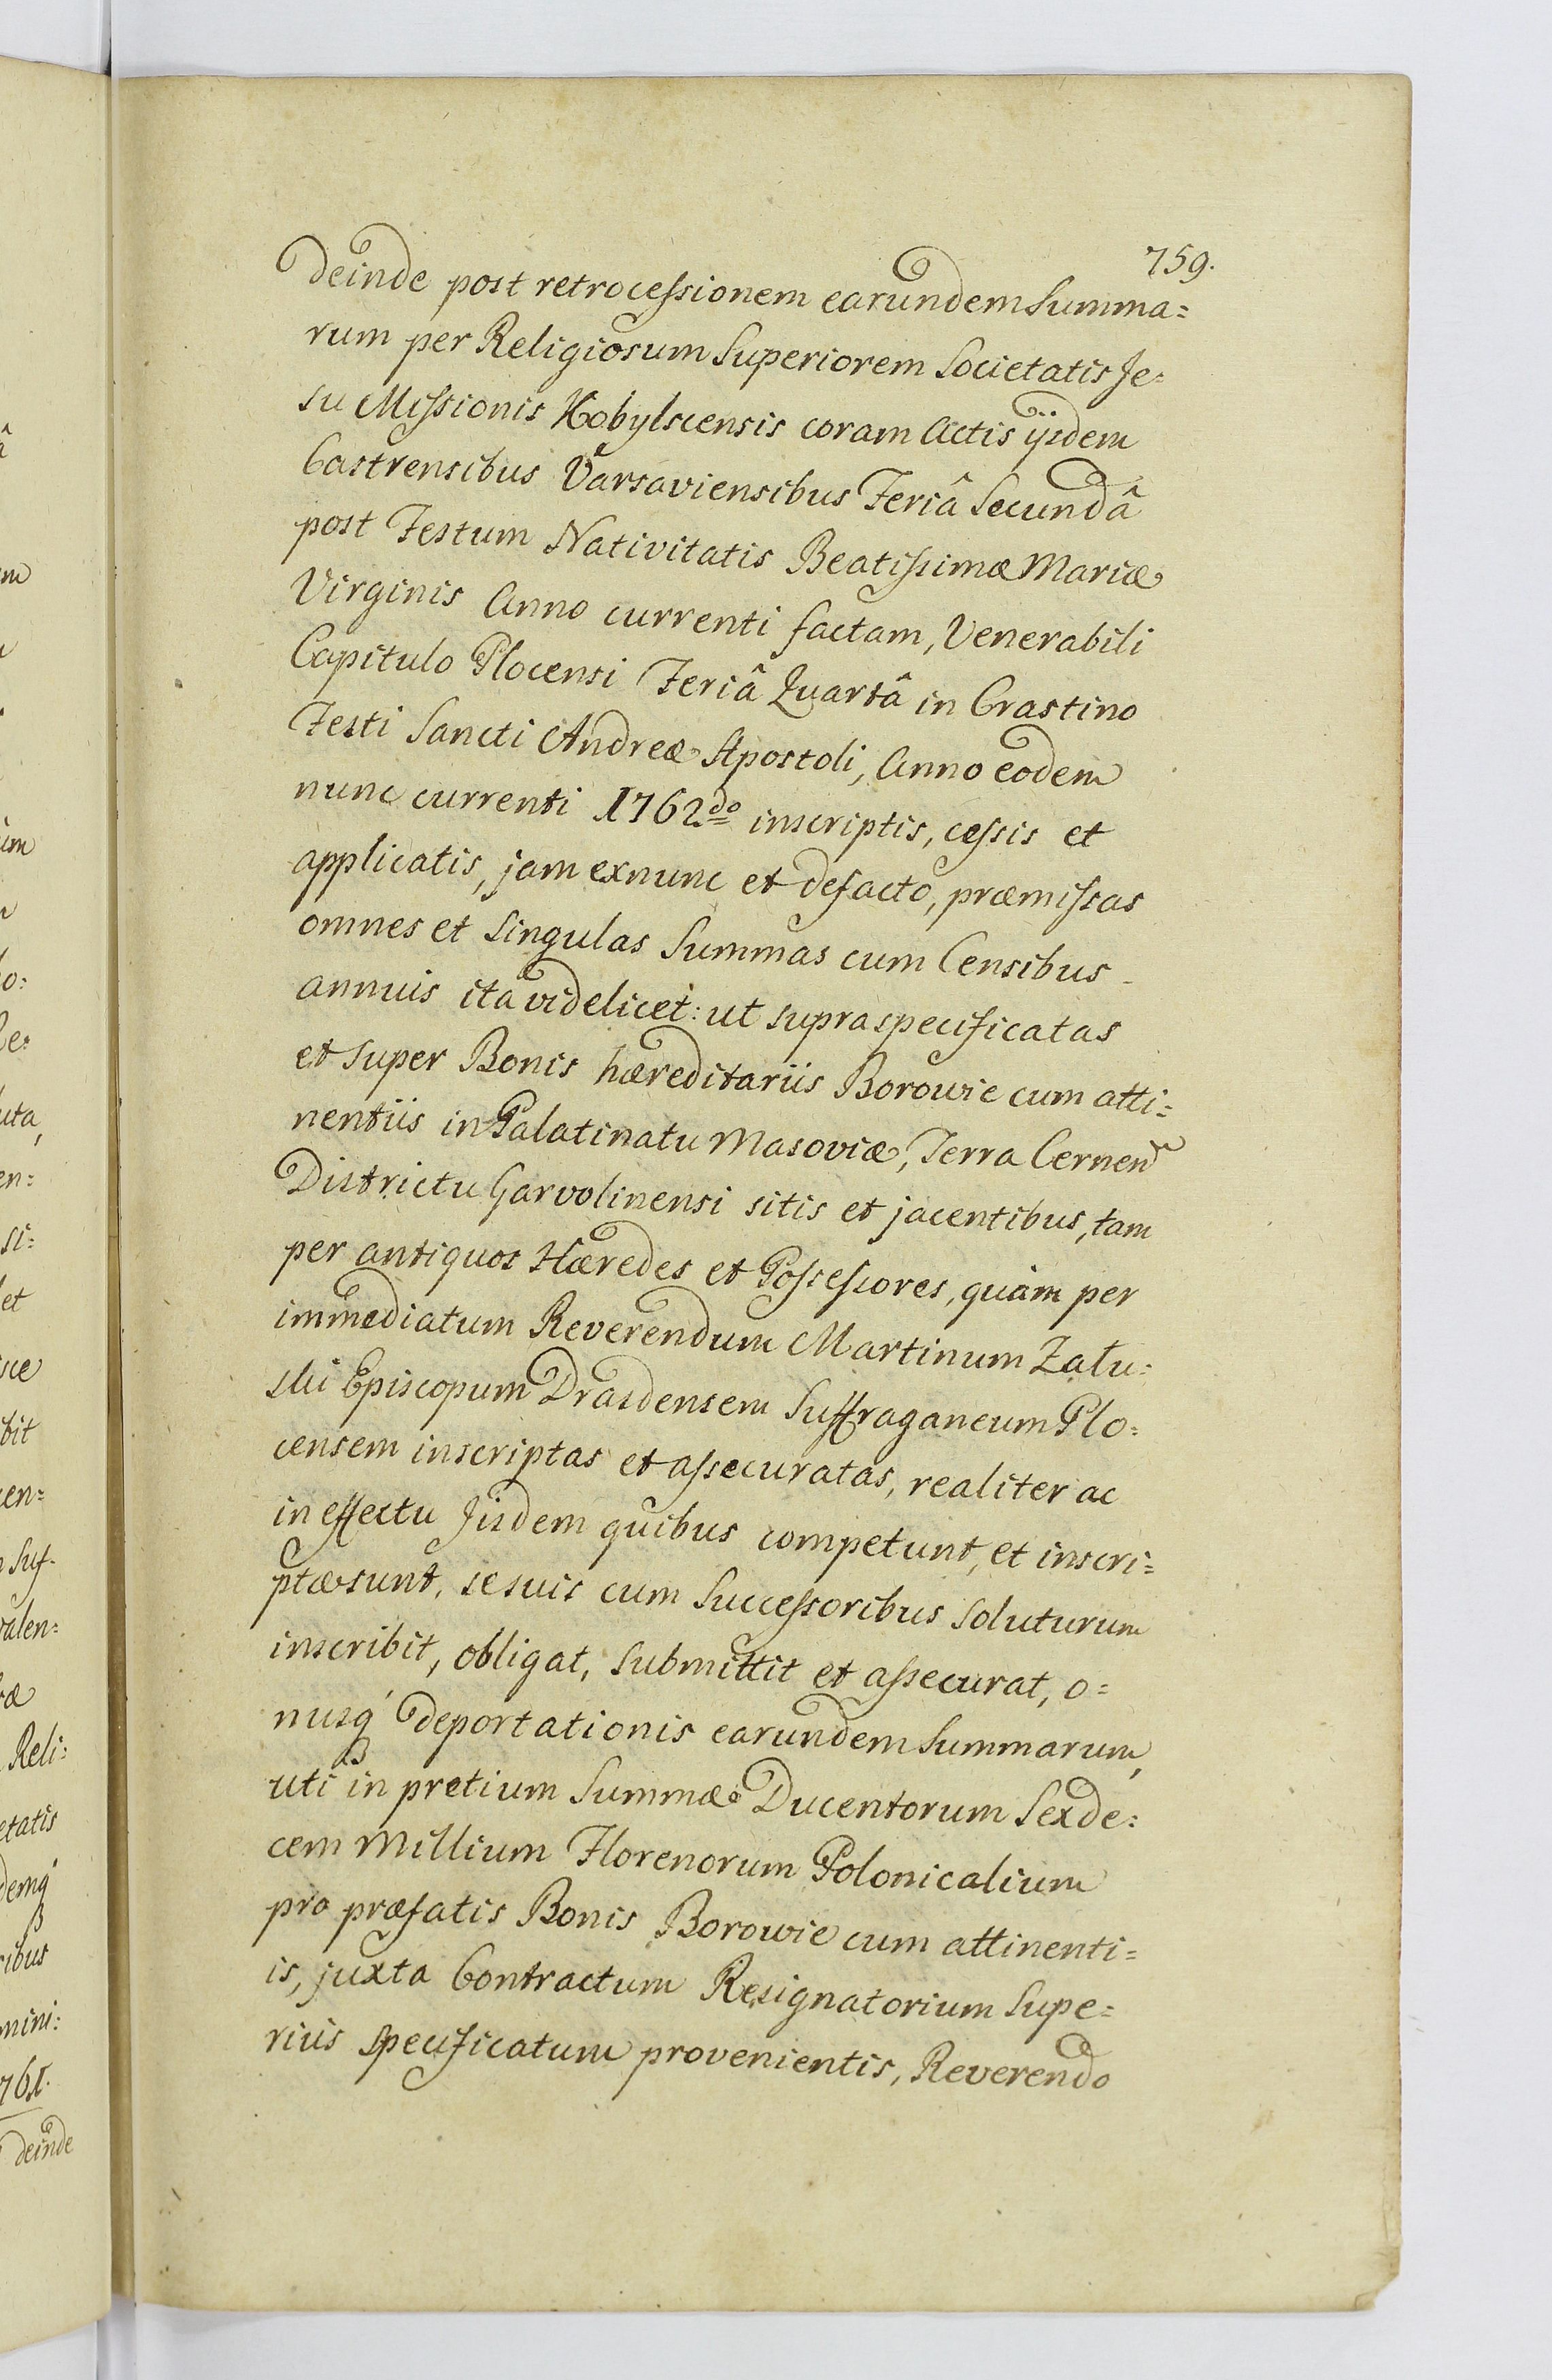 759.
deinde post retrocessionem earundem Summa=
rum per Religiosum Superiorem Societatis Je=
su Missionis Kobylscensis coram Actis ijsdem
Castrensibus Varsaviensibus Feriâ Secundâ
post Festum Nativitatis Beatissimæ Mariæ
Virginis Anno currenti factam, Venerabili
Capitulo Plocensi Feriâ Quartâ in Crastino
Festi Sancti Andreæ Apostoli, Anno eodem
nunc currenti 1762do inscriptis, cessis et
applicatis, jam exnunc et defacto, præmissas
omnes et singulas Summas cum Censibus
annuis ita videlicet: ut supra specificatas
et super Bonis hæreditariis Borowie cum atti=
nentiis in Palatinatu Masoviæ, Terra Cernen
Districtu Garvolinensi sitis et jacentibus, tam
per antiquos Hæredes et Possessores, quàm per
immediatum Reverendum Martinum Zalu=
ski Episcopum Drasdensem Suffraganeum Plo=
censem inscriptas et assecuratas, realiter ac
in effectu Jisdem quibus competunt, et inscri=
ptæ sunt, se suis cum Successoribus soluturum
inscribit, obligat, submittit et assecurat, o=
nusq́ deportationis earundem Summarum,
uti in pretium Summæ Ducentorum Sexde=
cem Millium Florenorum Polonicalium
pro præfatis Bonis Borowie cum attinenti=
is, juxta Contractum Resignatorium Supe=
rius specificatum provenientis, Reverendo
um
o:
en:
si:
et
bit
en=
Suf-
valen=
Reli:
etatis
demq́
ibus
mini:
761.
deinde